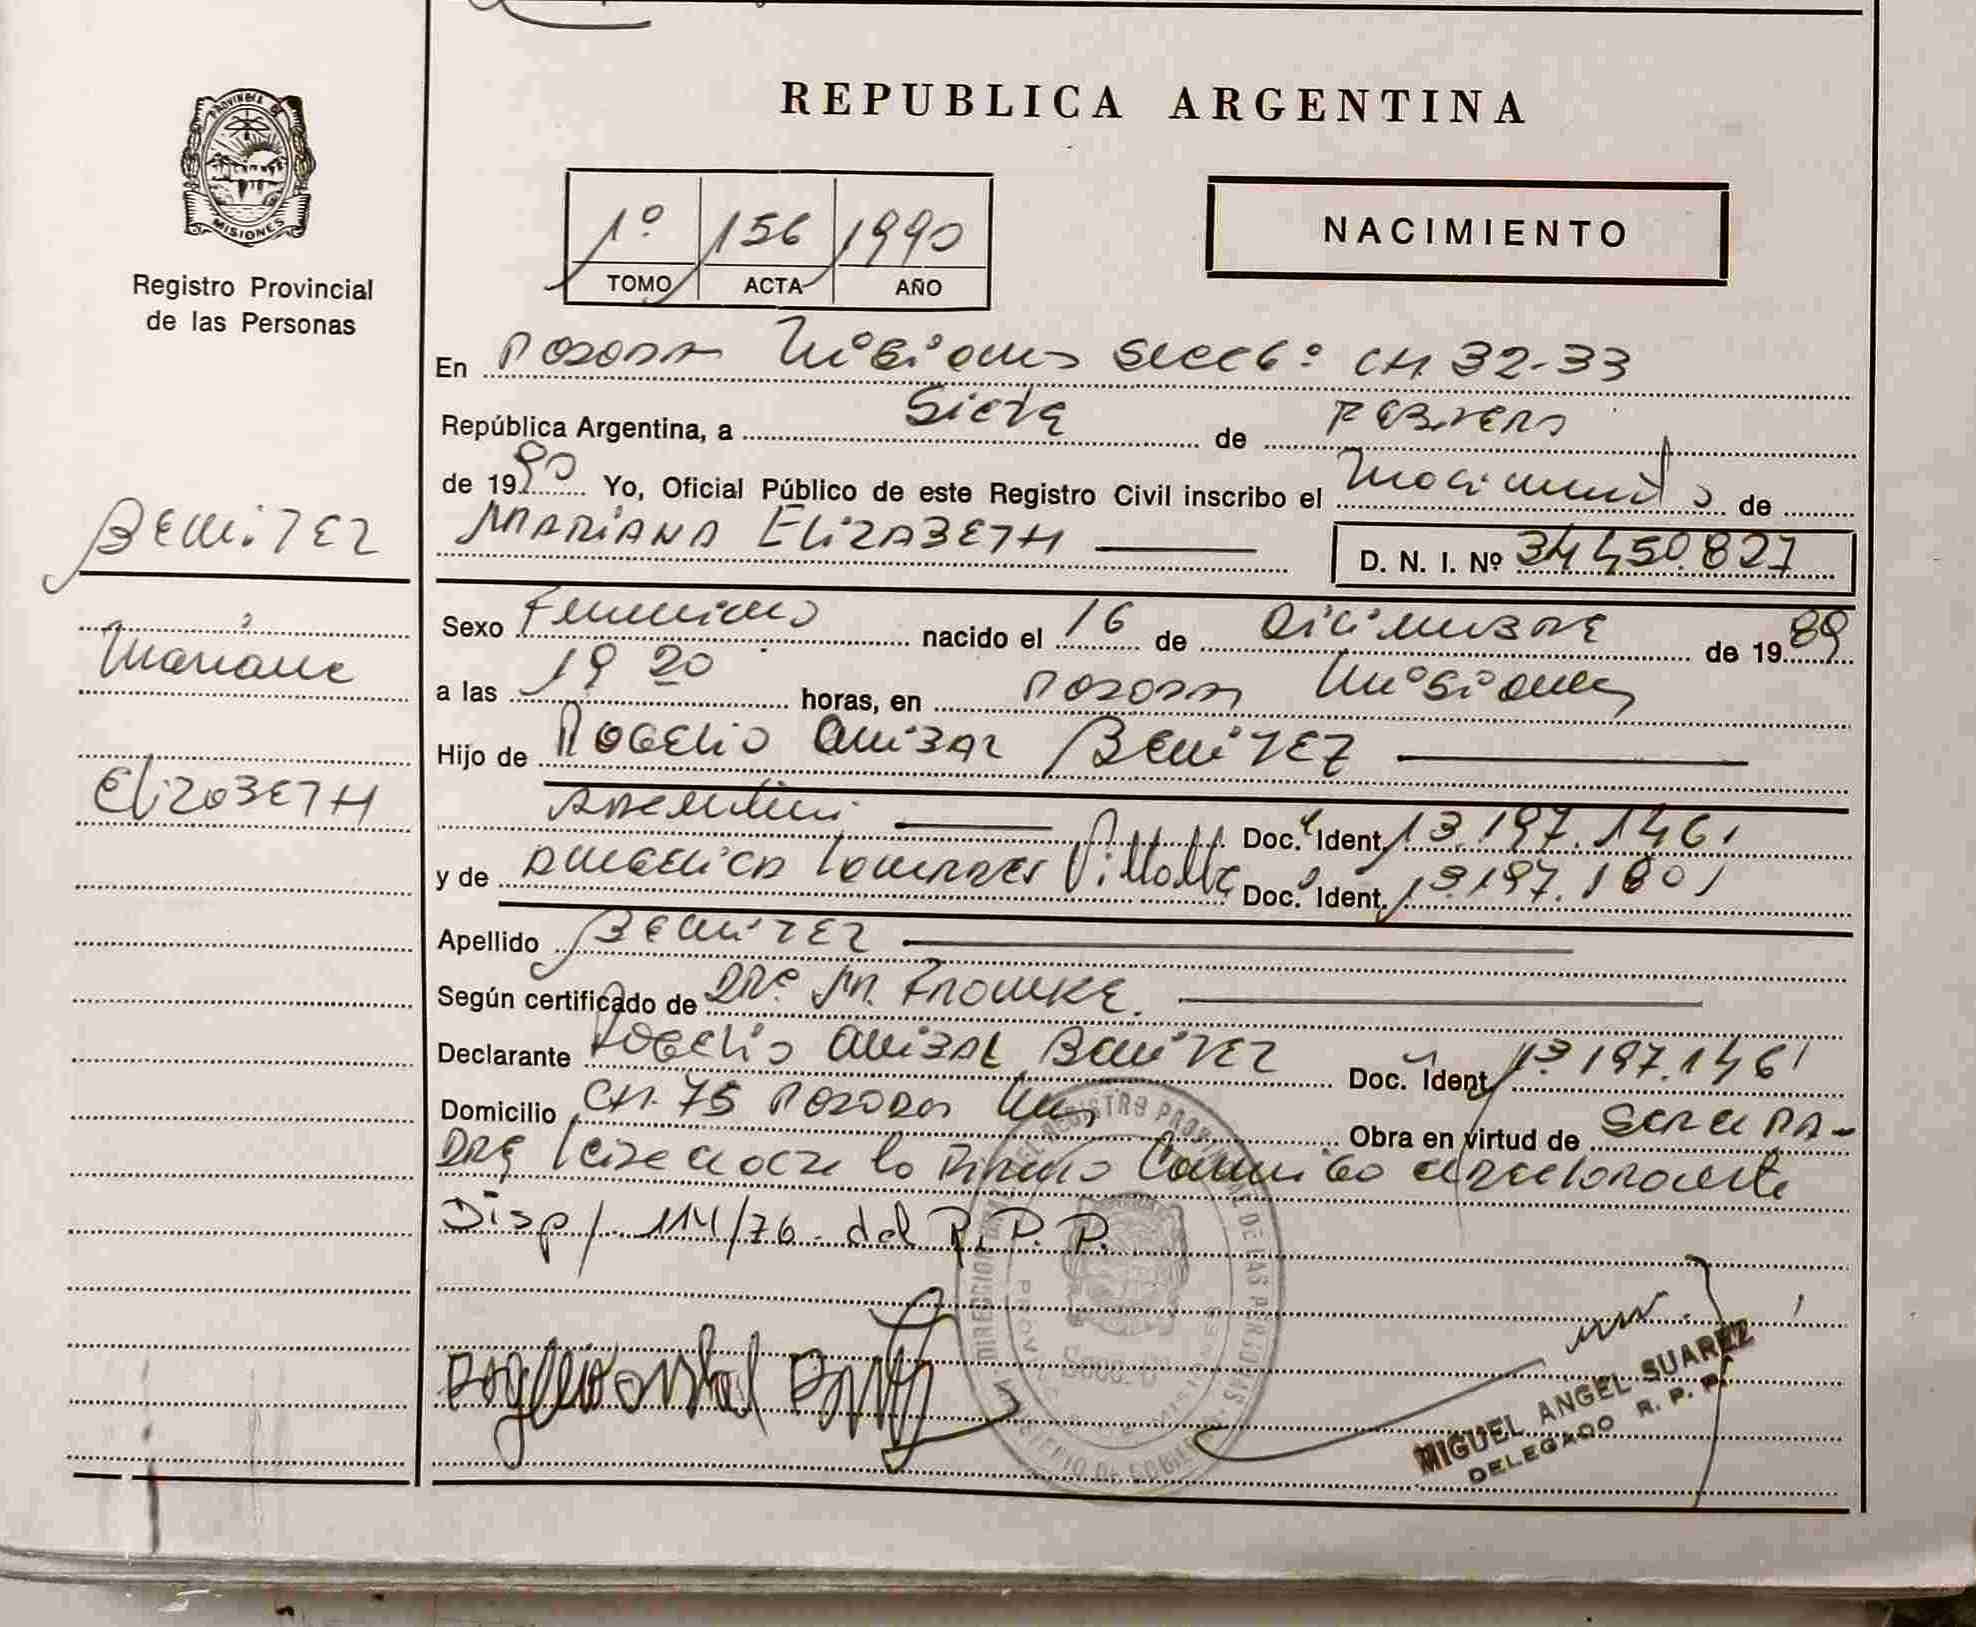 REPUBLICA ARGENTINA
PROVINCIA DE
MISIONES
Registro Provincial
de las Personas
1º 156 1990
TOMO ACTA AÑO
NACIMIENTO
En Posadas Misiones Secc 6º CH 32-33
República Argentina, a Siete de Febrero
de 1990 Yo, Oficial Público de este Registro Civil inscribo el Nacimiento de
MARIANA ELIZABETH D. N. I. Nº 34.450.827
BENITEZ
Mariana
ELIZABETH
Sexo Femenino nacido el 16 de Diciembre de 1989
a las 19 20 horas, en Posadas Misiones
Hijo de Rogelio Anibal Benitez
Argentino Doc. Ident. 13.197.146
y de Angelica Villalba Doc. Ident. 13.197.180
Apellido BENITEZ
Según certificado de DRA. M. FRONKE.
Declarante Rogelio Anibal Benitez Doc. Ident. 13.197.146
Domicilio CH. 75 Posadas Mnes Obra en virtud de ser el PA-
DRE lo Firma Conmigo el declarante
Disp/. 114/76. del R. P. P.
Rogelio Anibal
DIRECCION DEL REGISTRO PROVINCIAL DE LAS PERSONAS
MINISTERIO DE GOBIERNO
Secc. 6
MIGUEL ANGEL SUAREZ
DELEGADO R. P. P.